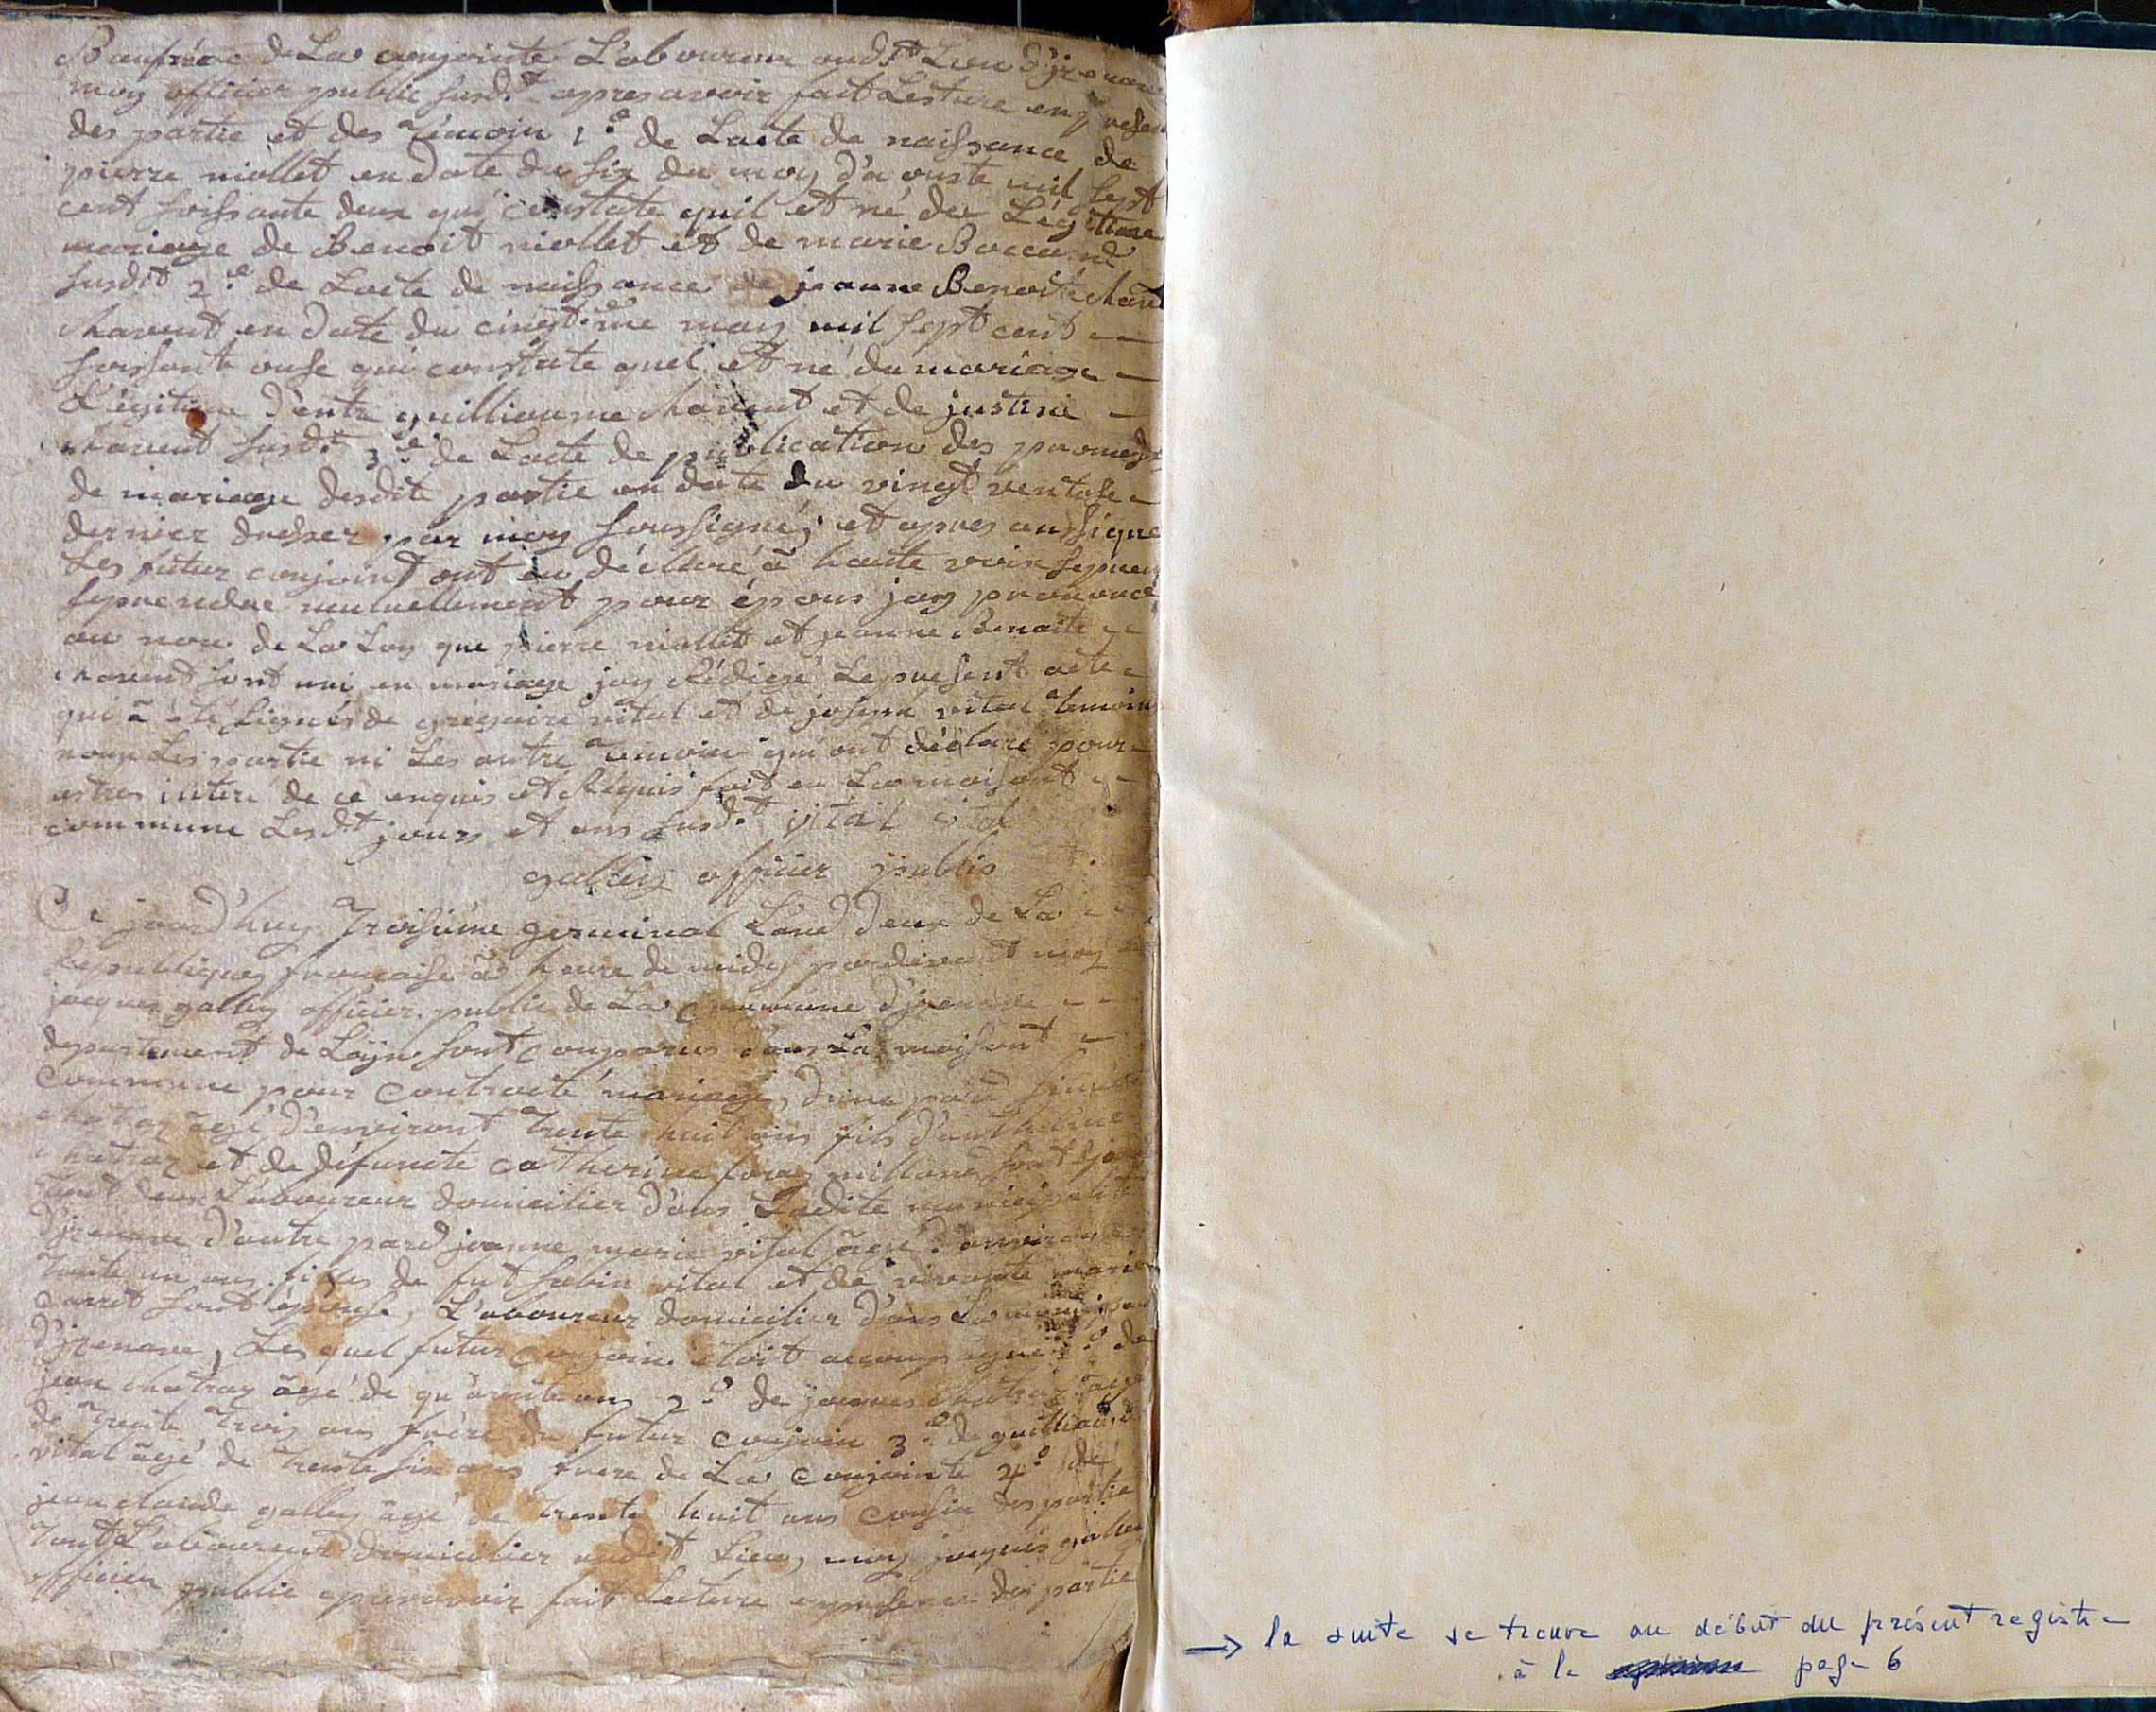 Baufrére de La conjointe L'aboureur aud.t Lieu d'jzenave
moy officier public susd.t apres avoir fait Lecture en presen
des partie et des Témoin 1.e de Lacte de naissance de
pierre niollet en date du six du moy d'aouste mil sept
cent soissante deux qui constate quil et né du Légitime
mariage de Benoit niollet et de marie Boccard
susdit 2.e de Lacte de naissance de jeanne Benoite Mavent
Mavent en date du cinqt.me may mil sept cent
soissant onse qui constate quel et né du mariage
Légitime d'entre guilliaume Mavent et de justine
Mavent susd.t 3.e de Lacte de publication des promes
de mariage desdite partie en date du vingt ventose
dernier dresser par moy soussigné, et apres aussi que
Les futur conjoint ont eu déclaré à haute voix
seprendre mutuellement pour épous jay prononce
au nom de La Loy que pierre niollet et jeanne Benoite
Mavent sont uni en mariage jay Rédigé Lepresent acte
qui à été signés de grégoire vital et de joseph vital temoin
nom Les partie ni Les autre temoin qui ont déclaré pour
estres interé de ce enquis et Réquis fait en La maisont
commune Lesd.t jours et ans susd.t vital vital
galley officier public
Ce jourd'huy Troisiéme germinal Land deux de La
Republiques francaise à heure de midy pardevant moy
jacques galley officier public de La Commune d'jzenave
departement de Lajn sont comparus dans La maisont
Commune pour Contracté mariage, d'une pard
chatray agé d'environt Trente huit ans fils d'anthelme
chatray et de défuncte catherine milland
Tout deux L'aboureur domicilier d'ans Ladite municipalité
D'jzenave d'autre pard jeanne marie vital àgé d'environ
Trente un ans filles de fut sabin vital et de vivante marie
carret sont épouse, L'aboureur domicilier d'ans La
D'jzenave, Les quel futur conjoin étoit accompagné 1.e de
jean chatray àgé de qu'arente ans 2.e de jacques chatray agé
de Trente Trois ans frére du futur conjoin 3.e de guilliaume
vital àgé de Trente six ans frere de La Conjointe 4.e de
jean claude galley àgé de trente huit ans Cousin des partie
Tout L'aboureur domicilier audit Lieu, moy jacques galley
officier public apres avoir fait Lecture enpresence des partie
→ la suite se trouve au début du présent registre
à la page 6